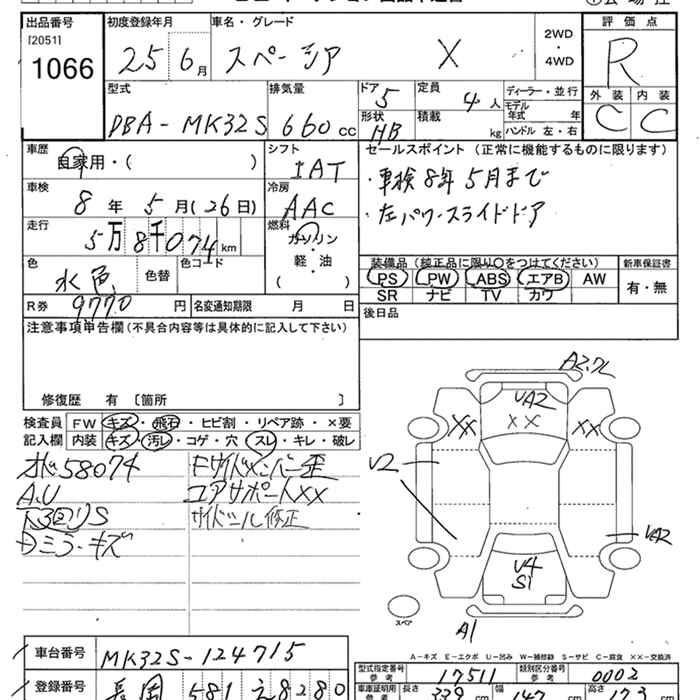 出品番号
［2051］
1066
初度登録年月
25 6月
車名・グレード
スペーシア X
2WD
・
4WD
評価点
R
外装 内装
C C
型式
DBA-MK32S
排気量
660 cc
ドア
5
形状
HB
定員
4人
積載
kg
ディーラー・並行
モデル年式 年
ハンドル 左・右
車歴
自家用・( )
シフト
IAT
セールスポイント（正常に機能するものに限ります）
・車検8年5月まで
・左パワースライドドア
車検
8年 5月(26日)
冷房
AAC
走行
5万8千074km
燃料
ガソリン
・
軽・油
( )
色
水色
色替
色コード
装備品（純正品に限り○をつけてください）
PS PW ABS エアB AW
SR ナビ TV カワ
新車保証書
有・無
R券 9770円
名変通知期限 月 日
後日品
注意事項申告欄(不具合内容等は具体的に記入して下さい)
修復歴 有 〔箇所 〕
検査員記入欄
FW キズ・飛石・ヒビ割・リペア跡・×要
内装 キズ・汚し・コゲ・穴・スレ・キレ・破レ
オド58074
A.U
下回りS
Dミラ・キズ
Fサイドメンバー歪
コアサポートXX
サイドシール修正
A2.ワレ
UA2
XX
XX
XX
U2
UA2
U4
S1
A1
スペア
A-キズ E-エクボ U-凹み W-補修跡 S-サビ C-腐食 ××-交換済
車台番号
MK32S-124715
型式指定番号
参考
17511
類別区分番号
参考
0002
登録番号
長岡 581 え8280
車庫証明用
参考
長さ 339
幅 147
高さ 173